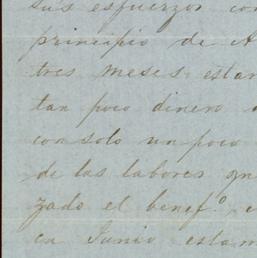 sus esfuerzos con
principio de A
tres meses estar
tan poco dinero
con solo un poco
de las labores qu
zado el benef.º
en Junio estam